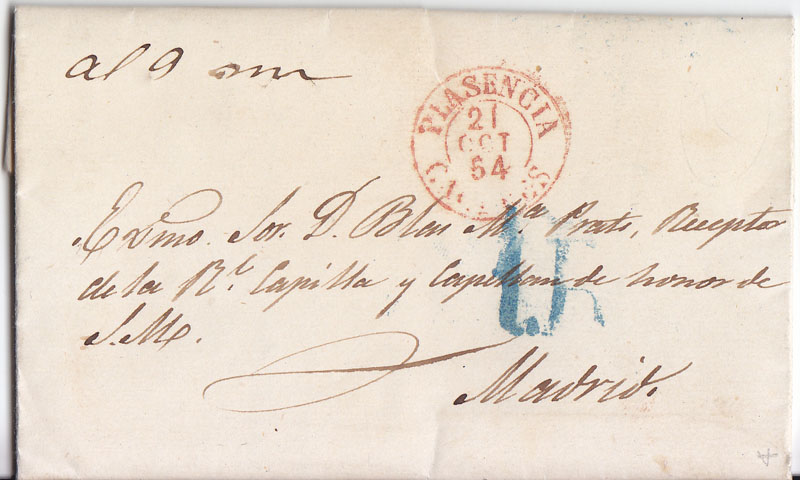 al 9
PLASENCIA
21
OCT
54
Exmo. Sor. D. Blas Ma. Prats, Receptor
de la Rl. Capilla y Capellan de honor de
S.M.
Madrid.